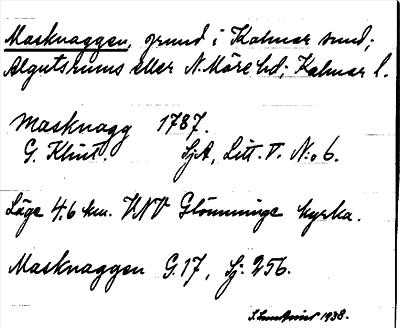 Masknaggen, grund i Kalmar sund;
Algutsrums eller N. Möre hd; Kalmar l.
Masknagg 1787.
G. Klint. SjA, Litt. V. N:o 6.
Läge 4,6 km. VNV Glömminge kyrka.
Masknaggen G. 17, Sj. 256.
1938.